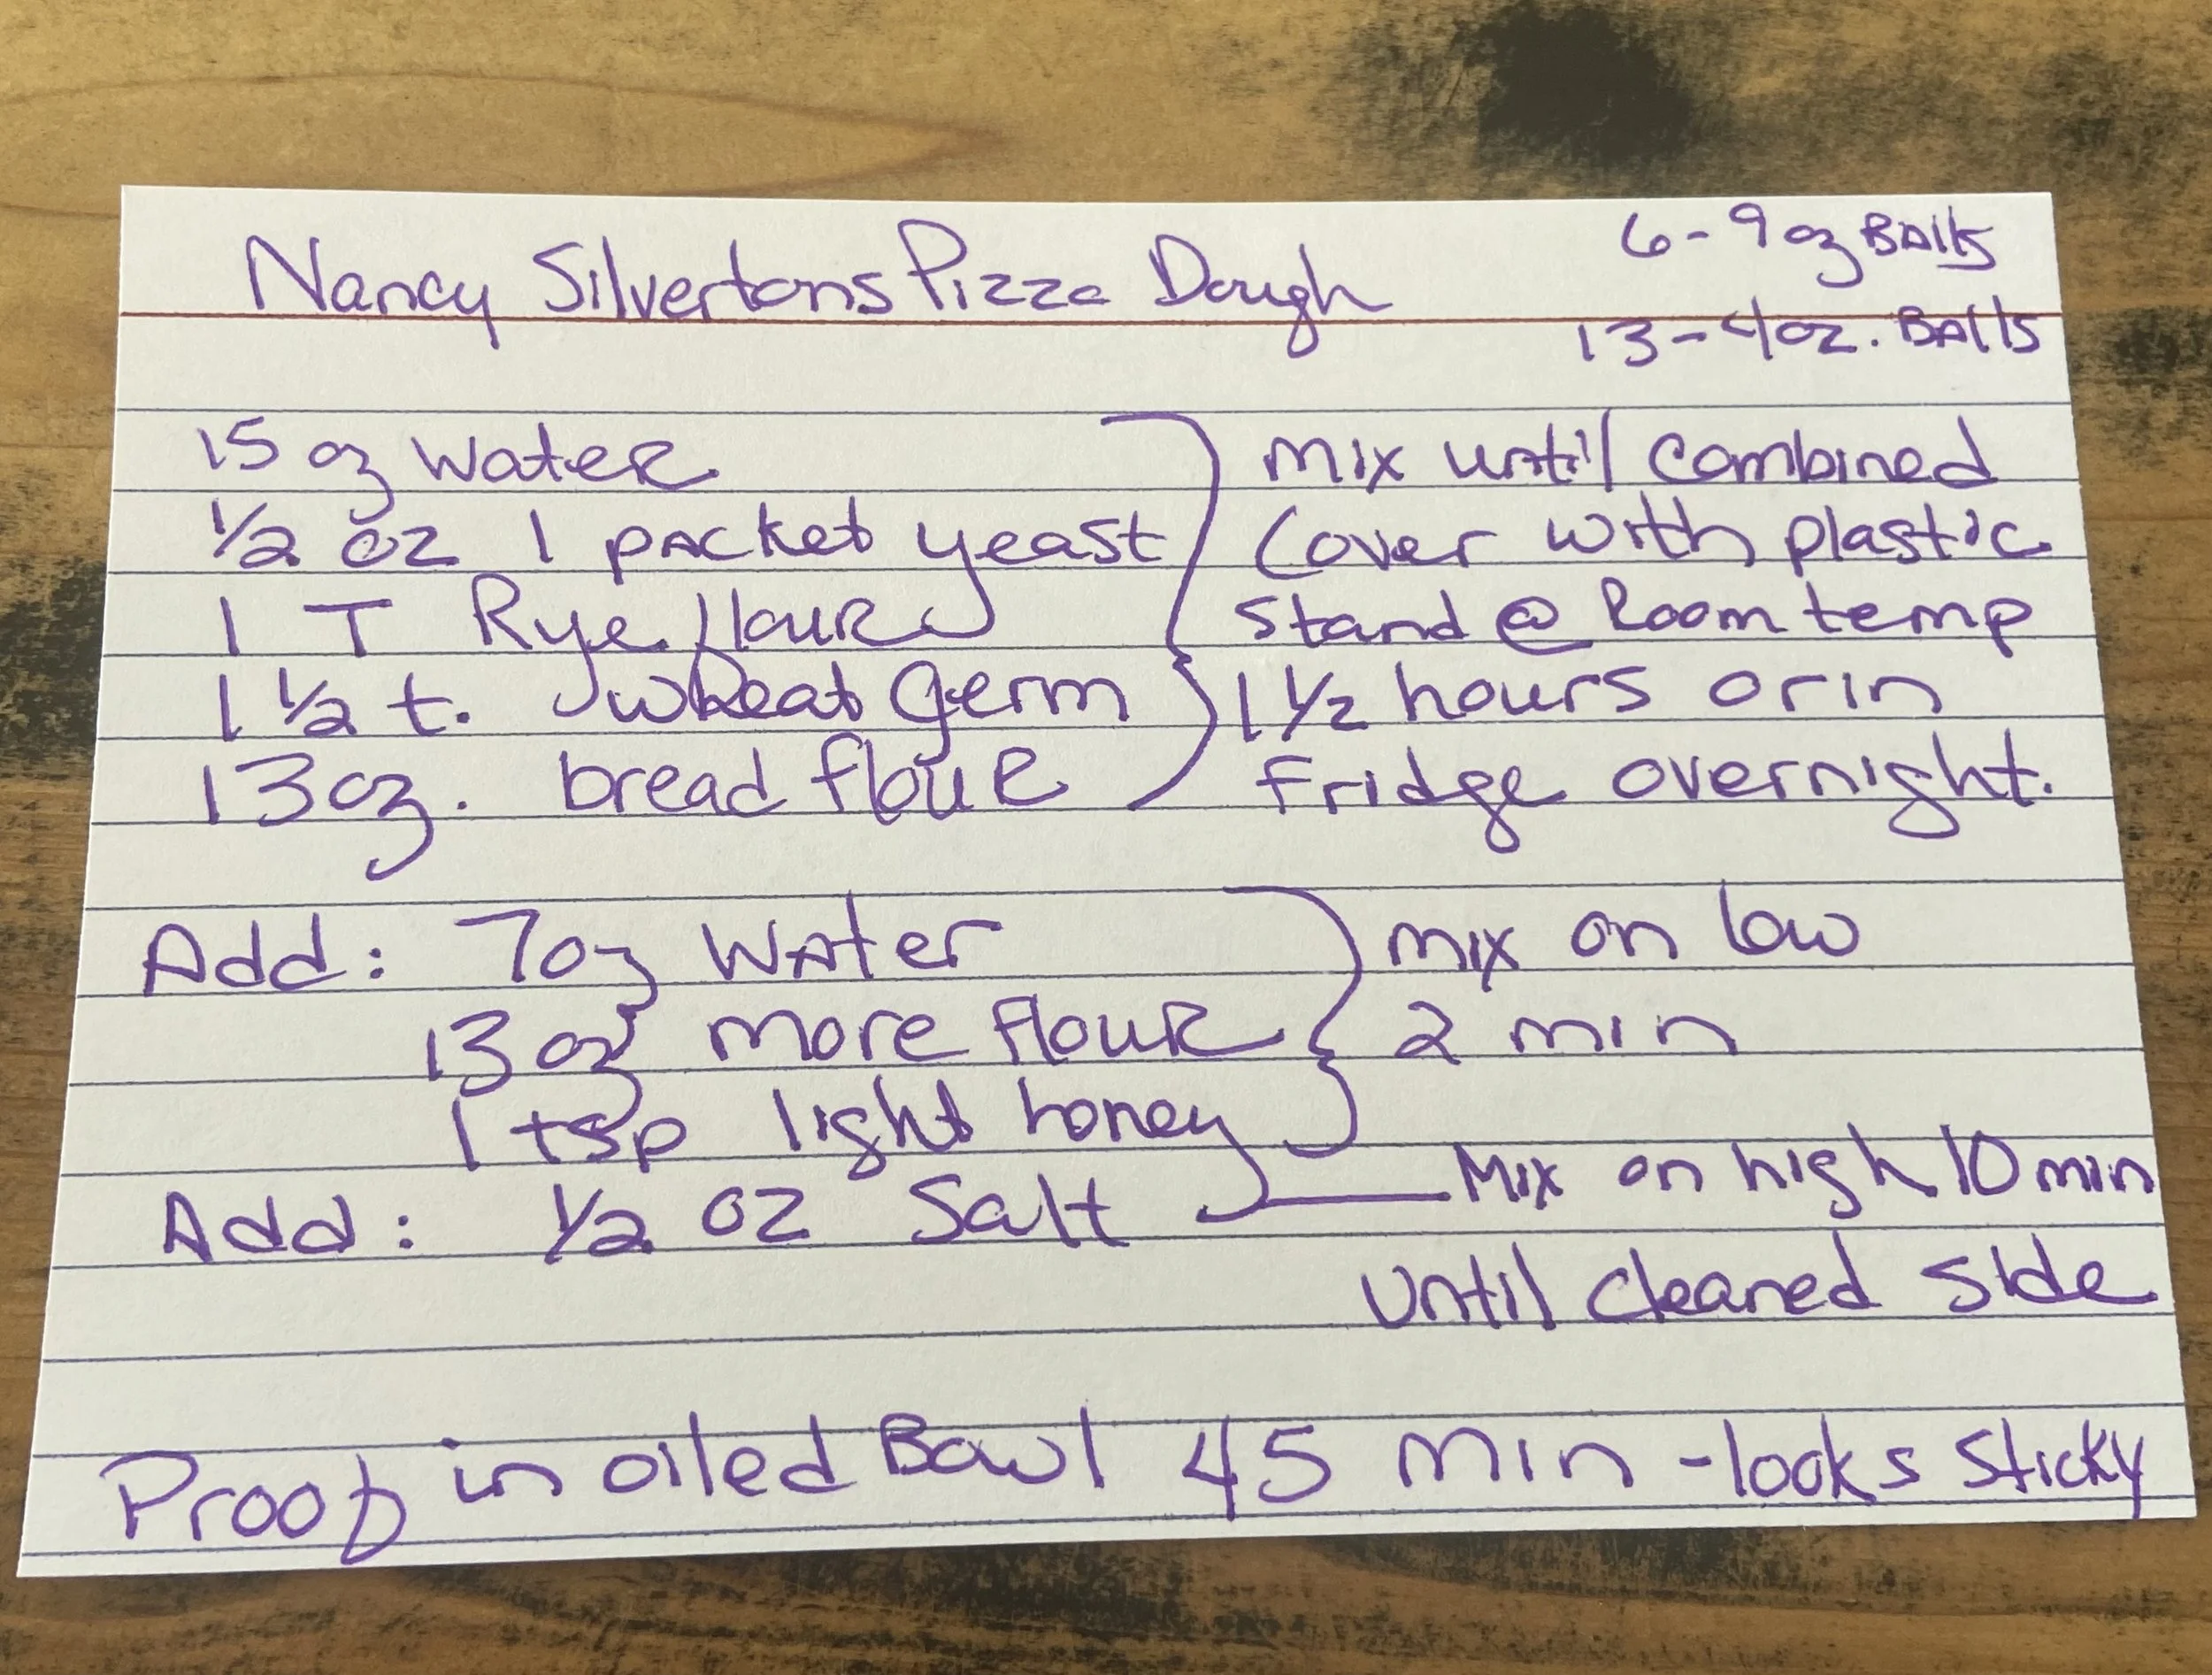 Nancy Silvertons Pizza Dough
6-9 oz Balls
13-4 oz. Balls
15 oz Water
1/2 oz 1 packet yeast
1 T Rye flour
1 1/2 t. wheat germ
13 oz. bread flour
Mix until combined
Cover with plastic
Stand @ Room temp
1 1/2 hours or in
Fridge overnight.
Add: 7 oz Water
13 oz more flour
1 tsp light honey
mix on low
2 min
Add: 1/2 oz Salt
Mix on high 10 min
until cleaned side
Proof in oiled Bowl 45 min - looks sticky